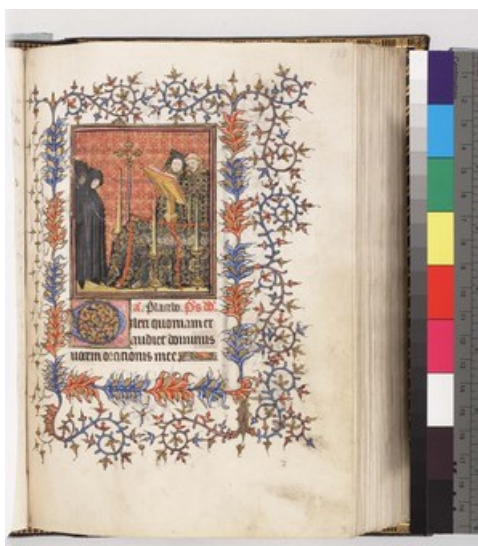 a. Placebo. ps dd
Dilexi quoniam ex
audiet dominus
uocem orationis mee